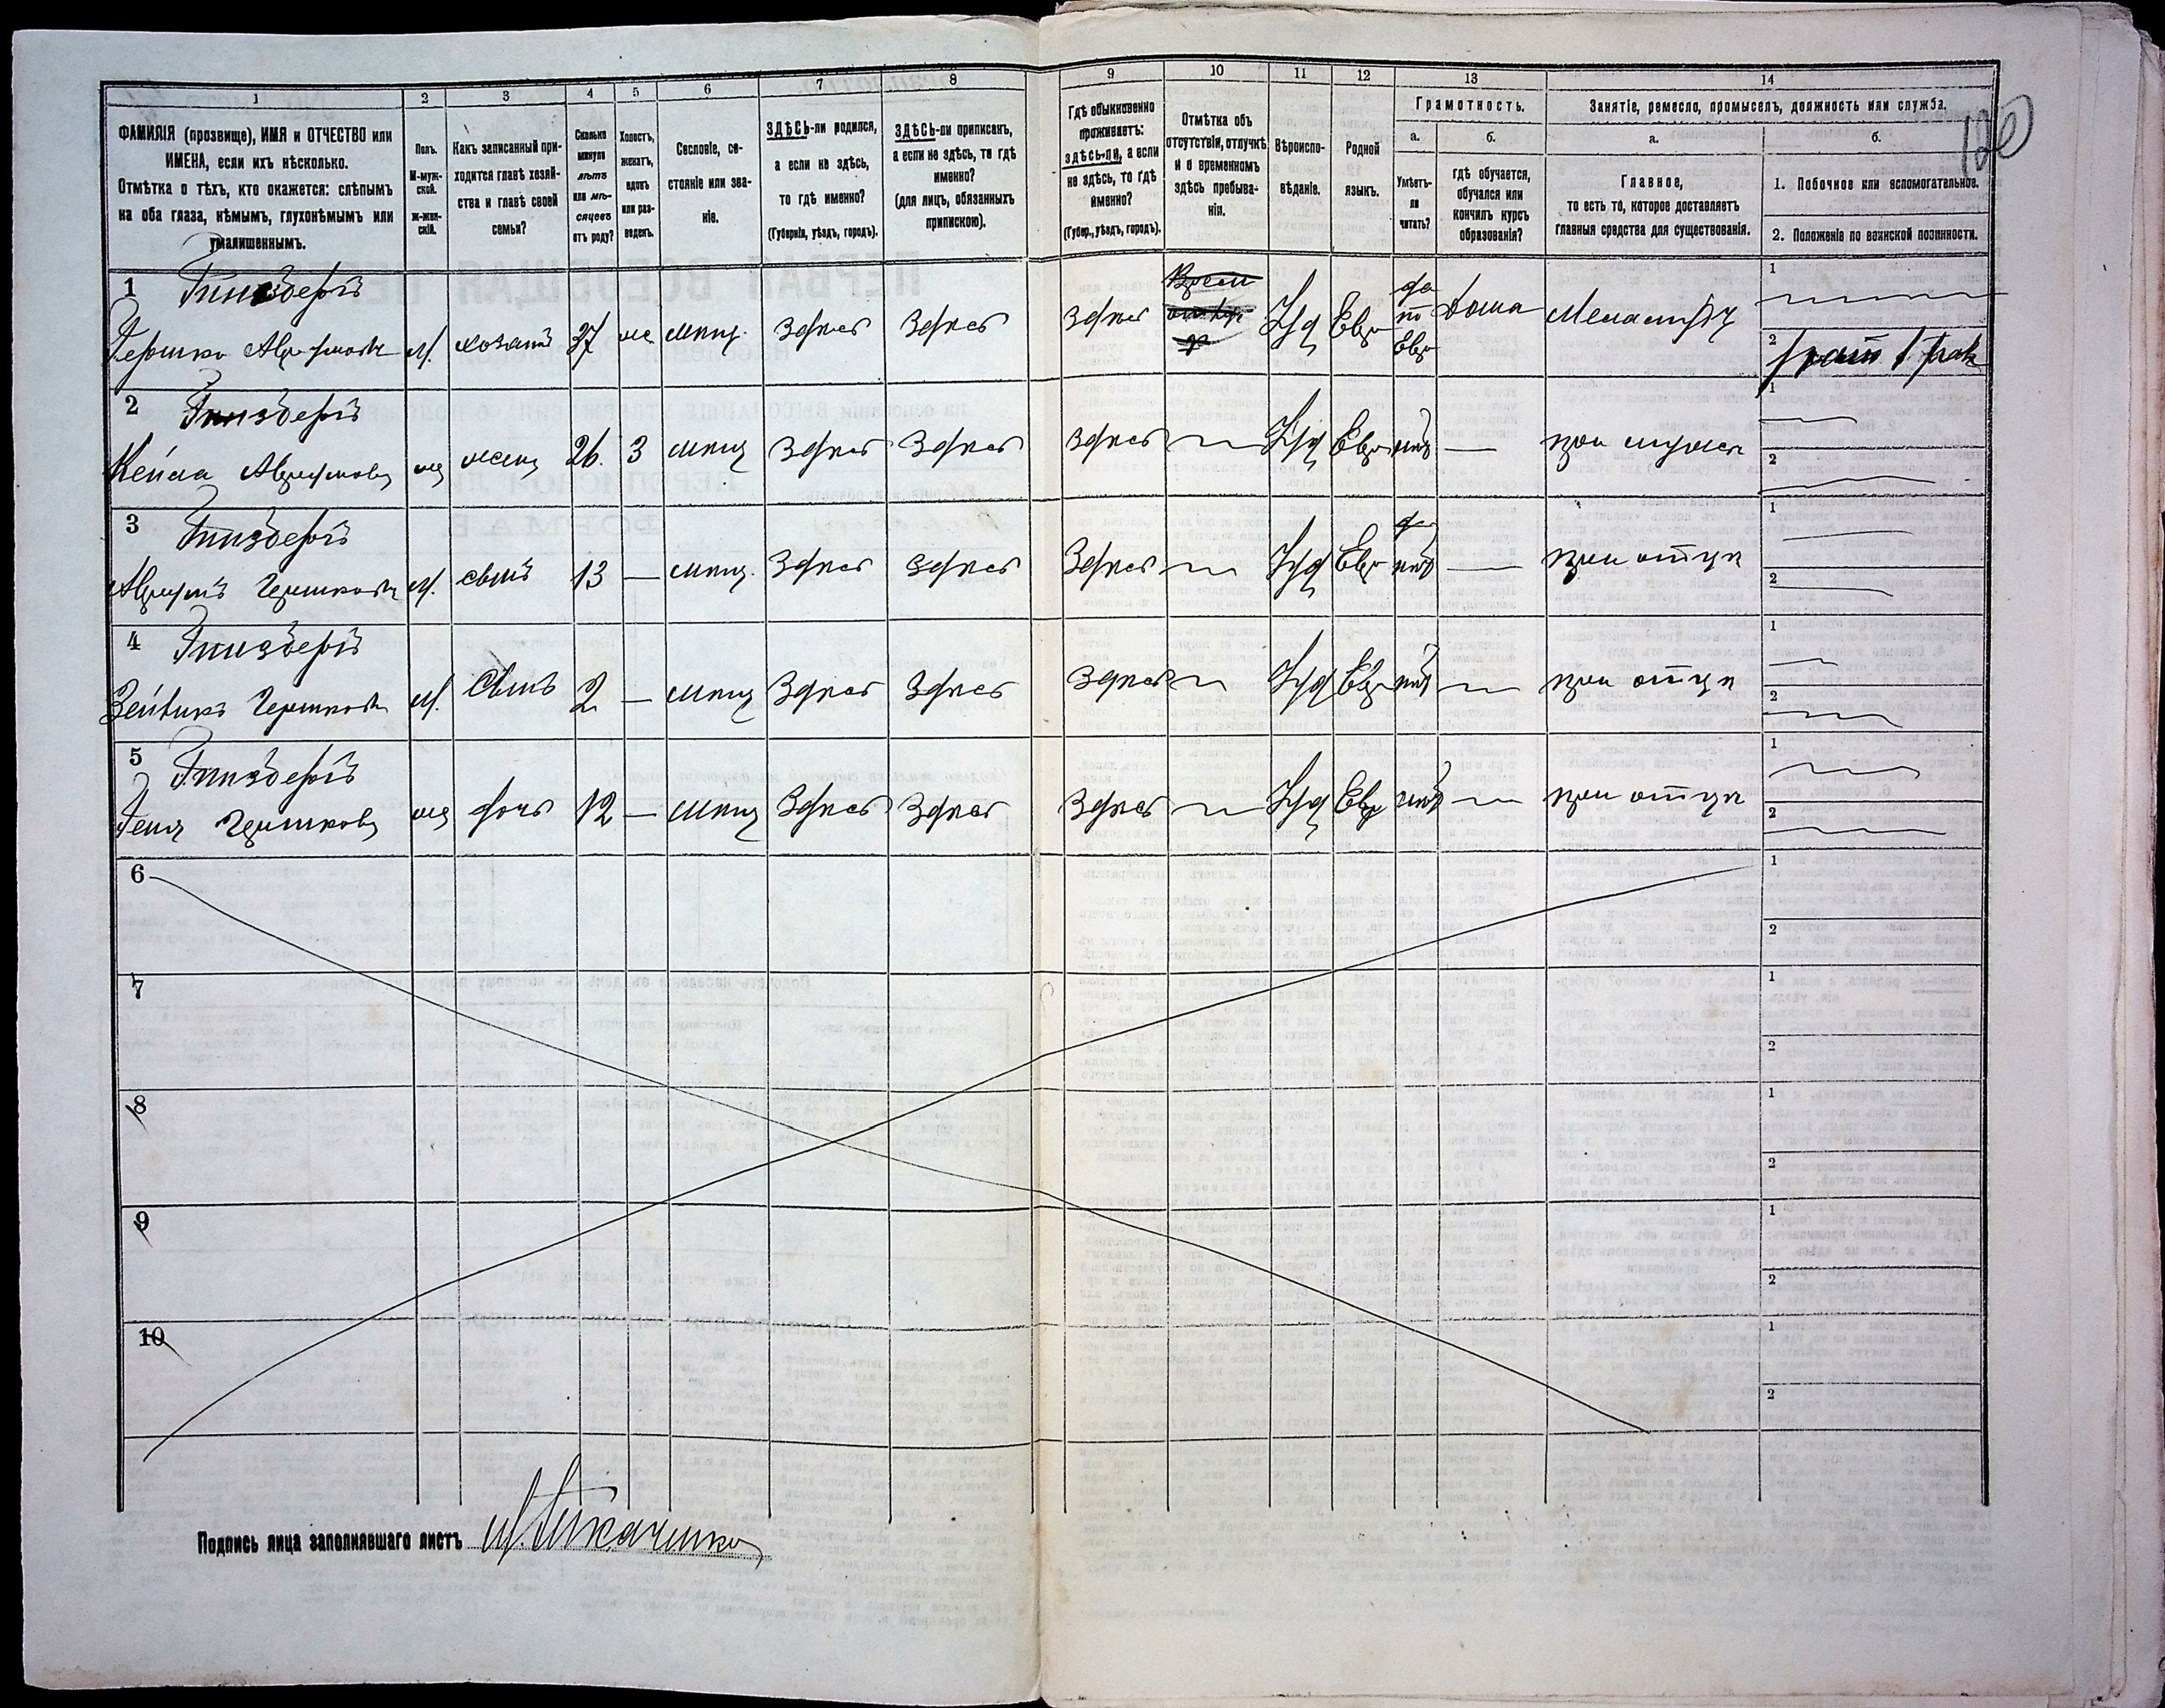 1
2
3
4
5
6
7
8
ФАМИЛІЯ (прозвище), ИМЯ и ОТЧЕСТВО или
ИМЕНА, если ихъ нѣсколько.
Отмѣтка о тѣхъ, кто окажется: слѣпымъ
на оба глаза, нѣмымъ, глухонѣмымъ или
умалишеннымъ.
Полъ.
М-муж-
ской.
Ж-жен-
скій.
Какъ записанный при-
ходится главѣ хозяй-
ства и главѣ своей
семьи?
Сколько
минуло
лѣтъ
или мѣ-
сяцевъ
отъ роду?
Холостъ,
женатъ,
вдовъ
или раз-
веденъ.
Сословіе, со-
стояніе или зва-
ніе.
ЗДѢСЬ-ли родился,
а если не здѣсь,
то гдѣ именно?
(Губернія, уѣздъ, городъ).
ЗДѢСЬ-ли приписанъ,
а если не здѣсь, то гдѣ
именно?
(для лицъ, обязанныхъ
припискою).
9
10
11
12
13
14
Гдѣ обыкновенно
проживаетъ:
здѣсь-ли, а если
не здѣсь, то гдѣ
именно?
(Губер., уѣздъ, городъ).
Отмѣтка объ
отсутствіи, отлучкѣ
и о временномъ
здѣсь пребыва-
ніи.
Вѣроиспо-
вѣданіе.
Родной
языкъ.
Грамотность.
а.
б.
Умѣетъ-
ли
читать?
гдѣ обучается,
обучался или
кончилъ курсъ
образованія?
Занятіе, ремесло, промыселъ, должность или служба.
а.
б.
Главное,
то есть то, которое доставляетъ
главныя средства для существованія.
1. Побочное или вспомогательное.
2. Положеніе по воинской повинности.
120
1
Гершко
м.
хозяинъ
37
же
мѣщ.
Здѣсь
Здѣсь
Здѣсь
Іуд
Евр
да
по
Евр
дома
1
2
2
жена
26
3
мѣщ
Здѣсь
Здѣсь
Здѣсь
Іуд
Евр
нѣт
—
при мужѣ
1
2
3
Гершков
м.
сынъ
13
—
мѣщ.
Здѣсь
Здѣсь
Здѣсь
Іуд
Евр
нѣт
—
при отцѣ
1
2
4
Зейвикъ Гершков
м.
сынъ
2
—
мѣщ
Здѣсь
Здѣсь
Здѣсь
Іуд
Евр
нѣт
при отцѣ
1
2
5
Гершкова
же
дочь
12
—
мѣщ
Здѣсь
Здѣсь
Здѣсь
Іуд
Евр
нѣт
при отцѣ
1
2
6
1
2
7
1
2
8
1
2
9
1
2
10
1
2
Подпись лица заполнявшаго листъ